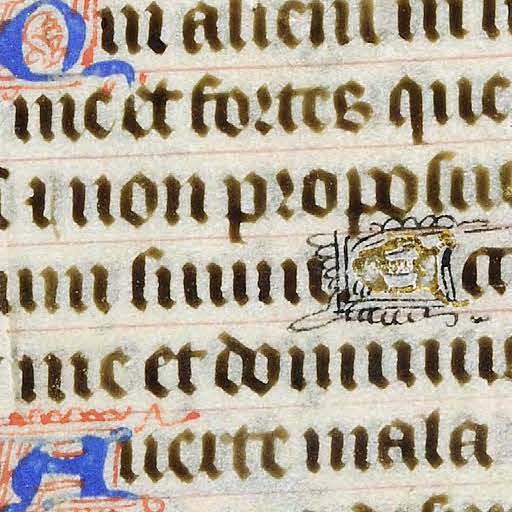 Qm alieni in
me et fortes que
non proposu
um suum Ec
me et dominu
Auerte mala